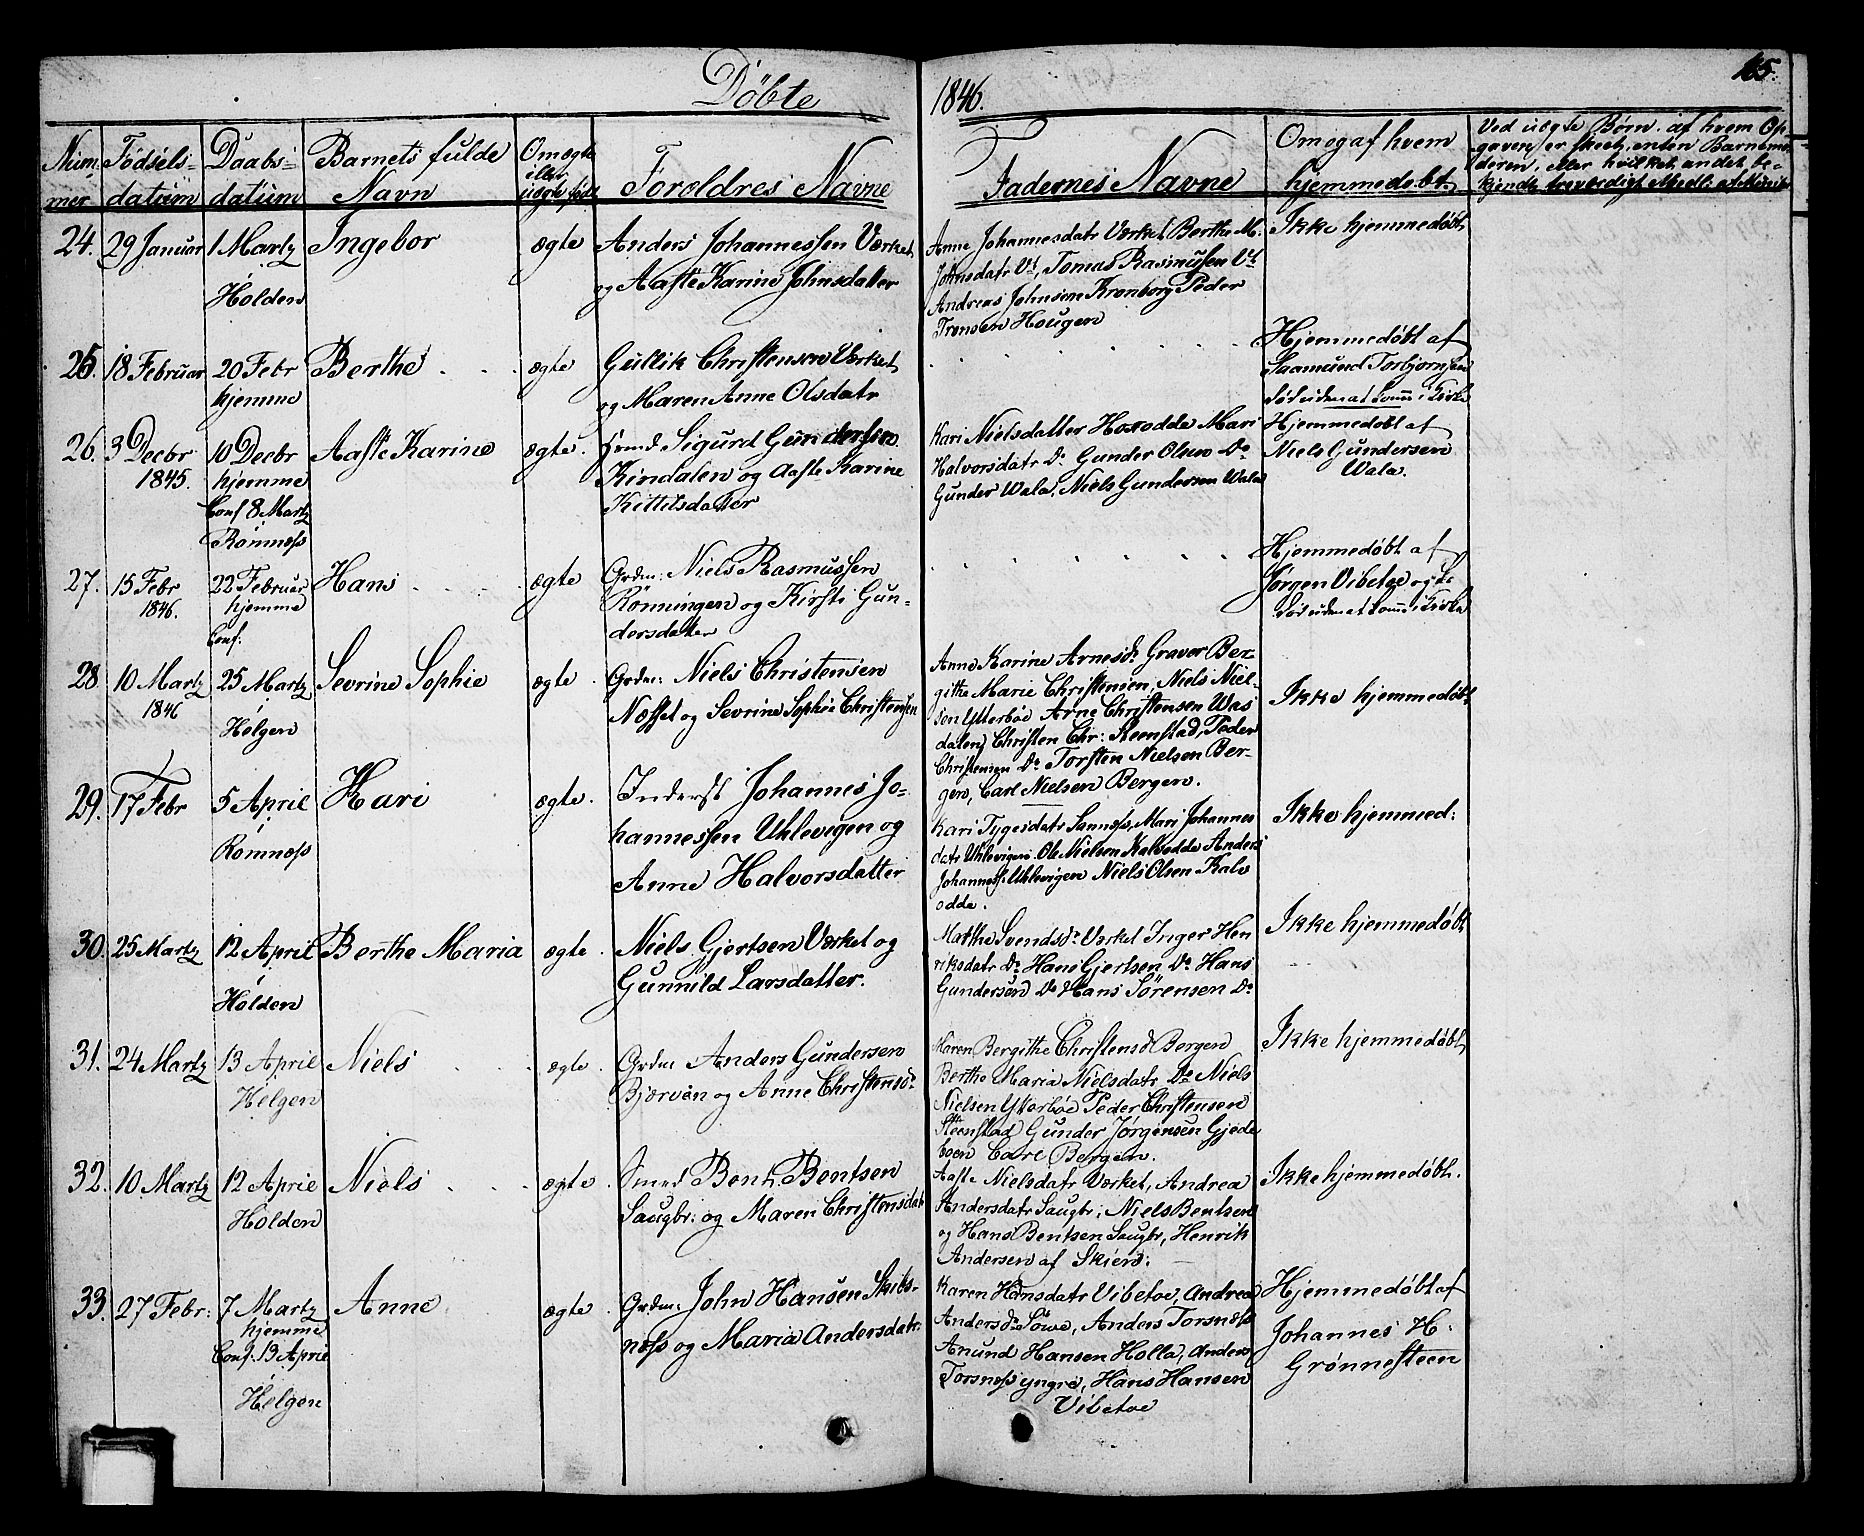 Döbte
1846.
165.
Num-
mer
Födsels-
datum
Daabs-
datum
Barnets fulde
Navn
Om ægte
eller
uægte født
Forældres Navne
Fadernes Navne
Om og af hvem
hjemmedöbt
Ved uægte Børn, af hvem Op-
gaven er skeet, enten Barnemo-
deren, eller hvilket andet be-
24.
29 Januar
1 Martz
Holden
Ingebor
ægte
Anders Johannessen Værket
og Aaste Karine Johnsdatter
Anne Johannesdatr Værket Berthe M.
Johnsdatr Vt, Tomas Rasmussen Vt
Andreas Johnsen Kronborg Peder
Tronsen Hougen
Ikke hjemmedøbt
25.
18 Februar
20 Febr
hjemme
Berthe
ægte
Gullik Christensen Værket
og Maren Anne Olsdatr
Hjemmedøbt af
Saamund Torbjørnsen
død uden at komme i Kirke
26.
3 Decbr
1845.
10 Decbr
hjemme
Conf 8 Martz
Romnæss
Aaste Karine
ægte.
Sigurd Gundersen
Kindalen og Aaste Karine
Kittilsdatter
Kari Nielsdatter Mari
Halvorsdatr Do Gunder Olsen Do
Gunder Wala, Niels Gundersen Wala
Hjemmedøbt af
Niels Gundersen
Wala.
27.
15 Febr
1846.
22 Februar
hjemme
Conf:
Hans
ægte
Grdm: Niels Rasmussen
Rönningen og Kirsti Gun-
dersdatter
Hjemmedøbt af
Jørgen Vibetoe og
død uden at komme i Kirke
28
10 Martz
1846
25 Martz
Helgen
Sevrine Sophie
ægte
Grdm: Niels Christensen
Næsset og Sevrine Sophie Christensen
Anne Karine Arnesdr Graver Ber-
githe Marie Christensen, Niels Niel-
sen Ytterböe Arne Christensen Was
dalen, Christen Chr: Steenstad, Peder
Christensen Do Torsten Nielsen Ber-
gen, Carl Nielsen Bergen.
Ikke hjemmedøbt
29.
17 Febr
5 April
Romnæss
Kari
ægte.
Inderst Johannes Jo-
hannessen Uhlevigen og
Anne Halvorsdatter
Kari Tygesdatr Sannæss, Mari Johannes
datr Uhlevigen Ole Nielsen Kalvodda Anders
Johanness. Uhlevigen Niels Olsen Kalv
odda.
Ikke hjemmed:
30.
25 Martz
12 April
Holden
Berthe Maria
ægte
Niels Gjertsen Værket og
Gunnild Larsdatter.
Marthe Svendsdr Værket Inger Hen
riksdatr Do Hans Gjertsen Do Hans
Gundersen Do Hans Sörensen Do
Ikke hjemmedøbt
31.
24 Martz
13 April
Helgen
Niels
ægte
Grdm Anders Gundersen
Bjærvan og Anne Christensdr
Maren Bergithe Christensd Bergen
Berthe Maria Nielsdatr Do Niels
Nielsen Ytterböe Peder Christensen
Steenstad Gunder Jörgensen Gjede
boen Carl Bergen.
Ikke hjemmedøbt
32.
10 Martz
12 April
Holden
Niels
ægte
Smed Bent Bentsen
Saugbr: og Maren Christensdatr
Aaste Nielsdatr Værket, Andrea
Andersdatr Saugbr: Niels Bentsen
og Hans Bentsen Saugbr, Henrik
Andersen af Skien:
Ikke hjemmedøbt.
33.
27 Febr:
7 Martz
hjemme
Conf. 13 April
Helgen
Anne
ægte
Grdm: John Hansen Skibs-
næss og Maria Andersdatr
Karen Hansdatr Vibetoe, Andrea
Andersdr Sowe, Anders Torsnæss
Anund Hansen Holla, Anders
Torsnæss yngre, Hans Hansen
Vibetoe
Hjemmedøbt af
Johannes H.
Grönnesteen